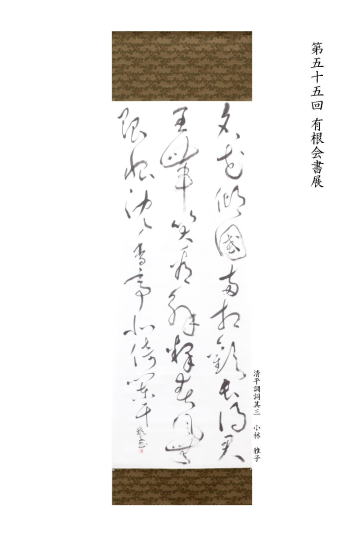 第五十五回 有根会書展
清平調詞其三 小林 雅子
名花傾國両相歓長得君
王帯笑看解釋春風無
限恨沈香亭北倚闌干